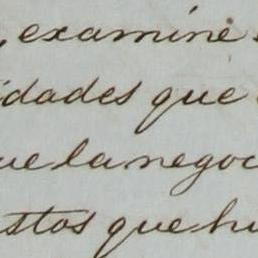 , examine
idades que
ue la negoc
stos que hu